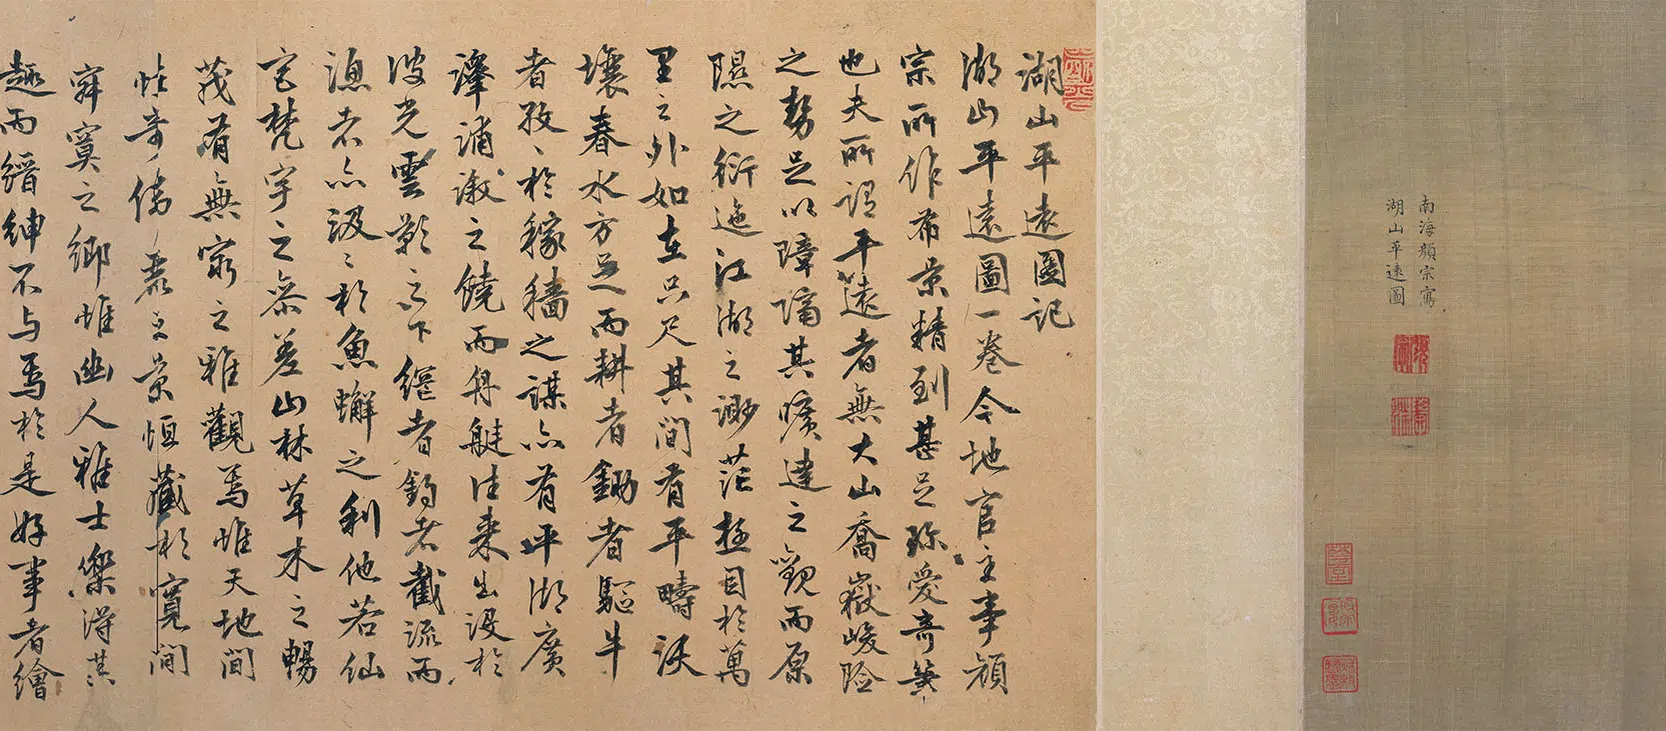 南海顏宗寫
湖山平遠圖
湖山平遠圖記
湖山平遠圖一卷今地官主事顏
宗所作布景精到甚足珍愛奇筆
也夫所謂平遠者無大山喬嶽峻險
之勢足以障隔其曠達之觀而原
隰之衍迤江湖之渺茫極目於萬
里之外如在只尺其間有平疇沃
壤春水方足而耕者鋤者驅牛
者孜〻於稼穡之謀亦有平湖廣
澤浦漵之饒而舟艇往来出没於
波光雲影之下纚者釣者截流而
漁者亦汲〻於魚蠏之利他若仙
宅梵宇之叅差山林草木之暢
茂眉無窮之雅觀焉惟天地間
恠奇偉麗之景恒藏於寬閒
寂寞之鄉惟幽人雅士樂得其
趣而縉紳不与焉於是好事者繪